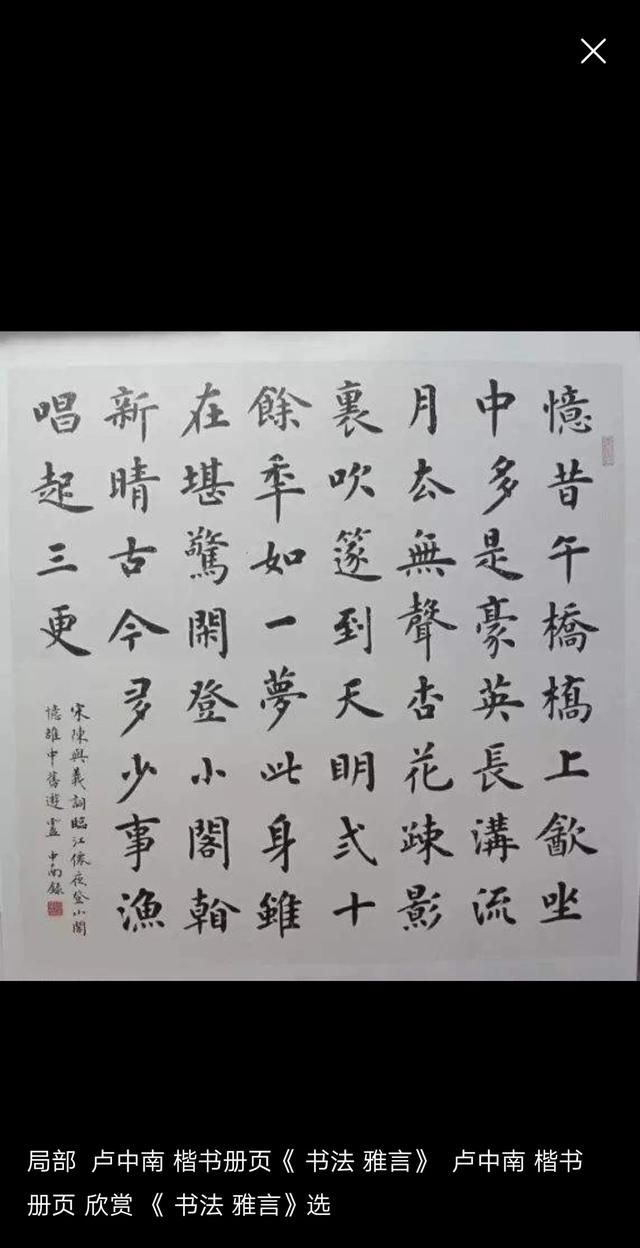 憶昔午橋槗上㱃坐
中多是豪英長溝流
月厺無聲杏花疎影
裏吹篴到天明弍十
餘秊如一夢此身雖
在堪驚閑登小閣翰
新晴古今多少事漁
唱起三更
宋陳與義詞臨江僊夜登小閣
憶雒中舊遊 中南錄
局部 卢中南 楷书册页《 书法 雅言》 卢中南 楷书
册页 欣赏 《 书法 雅言》选